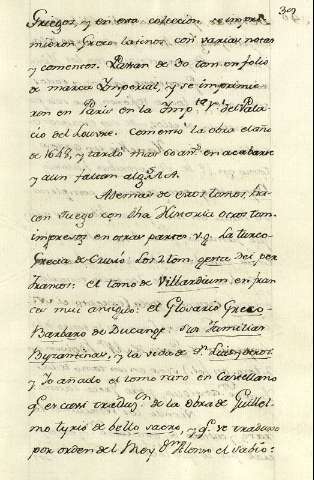 39
Griegos, y en esta coleccion se impri-
mieron Greco latinos, con varias notas
y comentos. Passan de 30 tom. en folio
de marca Imperial, y se imprimie-
ron en Paris en la Imp.ta R.l del Pala-
cio del Louvre. Comenzó la obra el año
de 1645, y tardó mas 60 an.s en acabarse
y aun faltan alg.s
Ademas de estos tomos, ha-
cen juego con dha Historia otros tom.
impresos en otras partes v.g. la turco-
Grecia de Crusio. Los 2 tom. gesta Dei per
Francos: el tomo de Villarduin en fran-
ces mui antiguo: el Glosario Greco-
Barbaro de Ducange: sus Familias
Byzantinas, y la vida de Sn. Luis
y Yo añado el tomo raro en Castellano
q.e es casi traduz.on de la obra de Guillel-
mo tyrio de bello sacro, y q.e se traduxo
por orden del Rey Dn. Alonso el sabio: